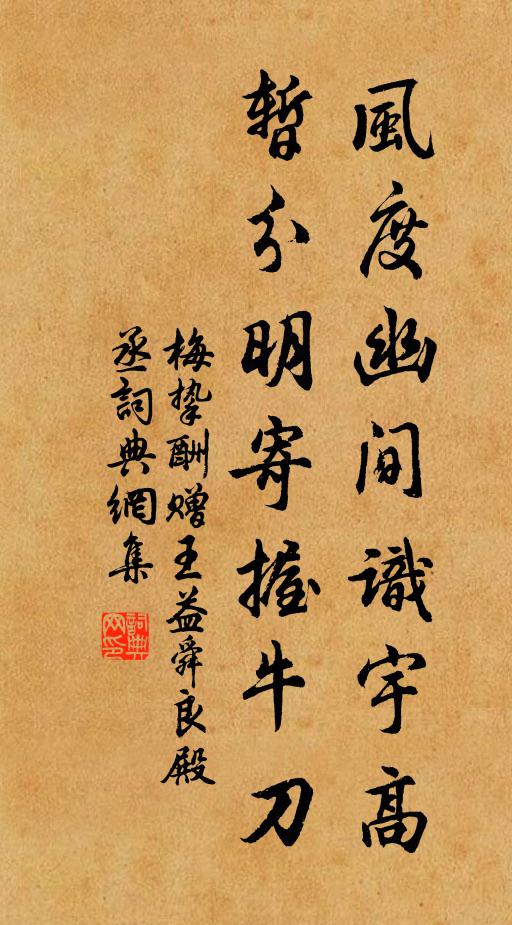 風度幽間識宇高
暫分明寄握牛刀
梅挚酬赠王益舜良殿
丞詞典網集
詞典网印